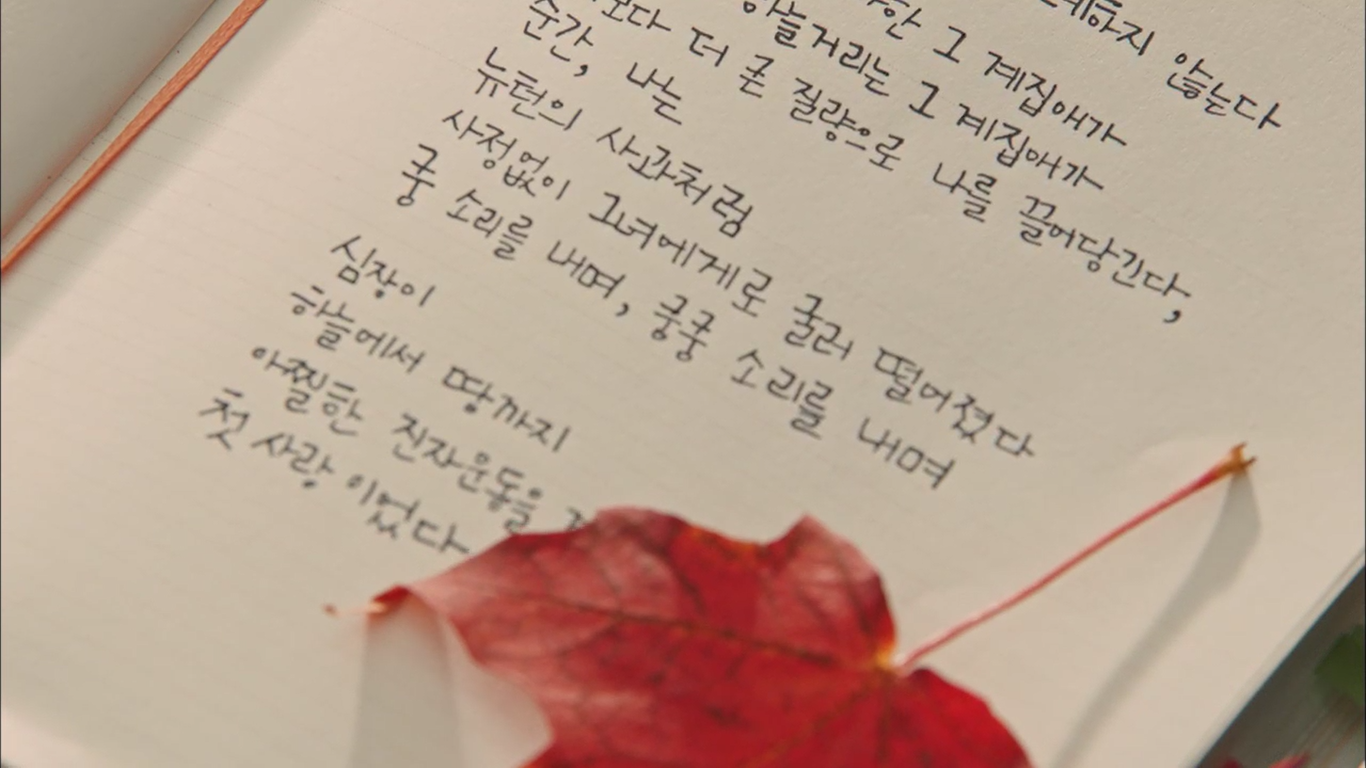 않는다
그 계집애가
하늘거리는 그 계집애가
더 큰 질량으로 나를 끌어당긴다,
순간, 나는
뉴턴의 사과처럼
사정없이 그녀에게로 굴러 떨어졌다
쿵 소리를 내며, 쿵쿵 소리를 내며
심장이
하늘에서 땅까지
아찔한 진자운동을
첫사랑 이었다